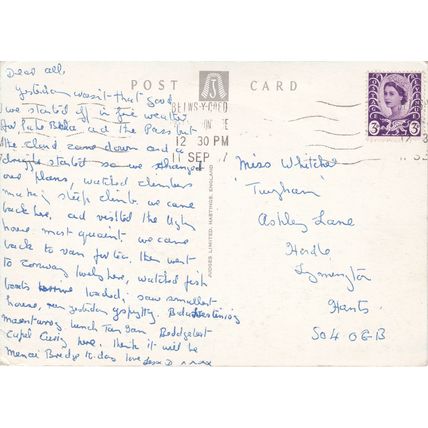 POST CARD
BETWS-Y-COED
12 30 PM
11 SEP
3 3
JUDGES LIMITED, HASTINGS, ENGLAND
Dear all,
yesterday wasn't that good
we started off in fine weather
for Lake and the Pass but
the cloud came down and a
started so we changed
our plans, watched climbers
making steep climb, we came
back here, and visited the Ugly
house most quaint. we came
back to van for tea, then went
to Conway here, watched fish
boats loaded, saw smallest
house,
lunch Tan Beddgelert
Capel Curig here, think it will be
Menai Bridge to-day love
Miss White
Ashley Lane
Hordle
Lymington
Hants
SO4 0GB